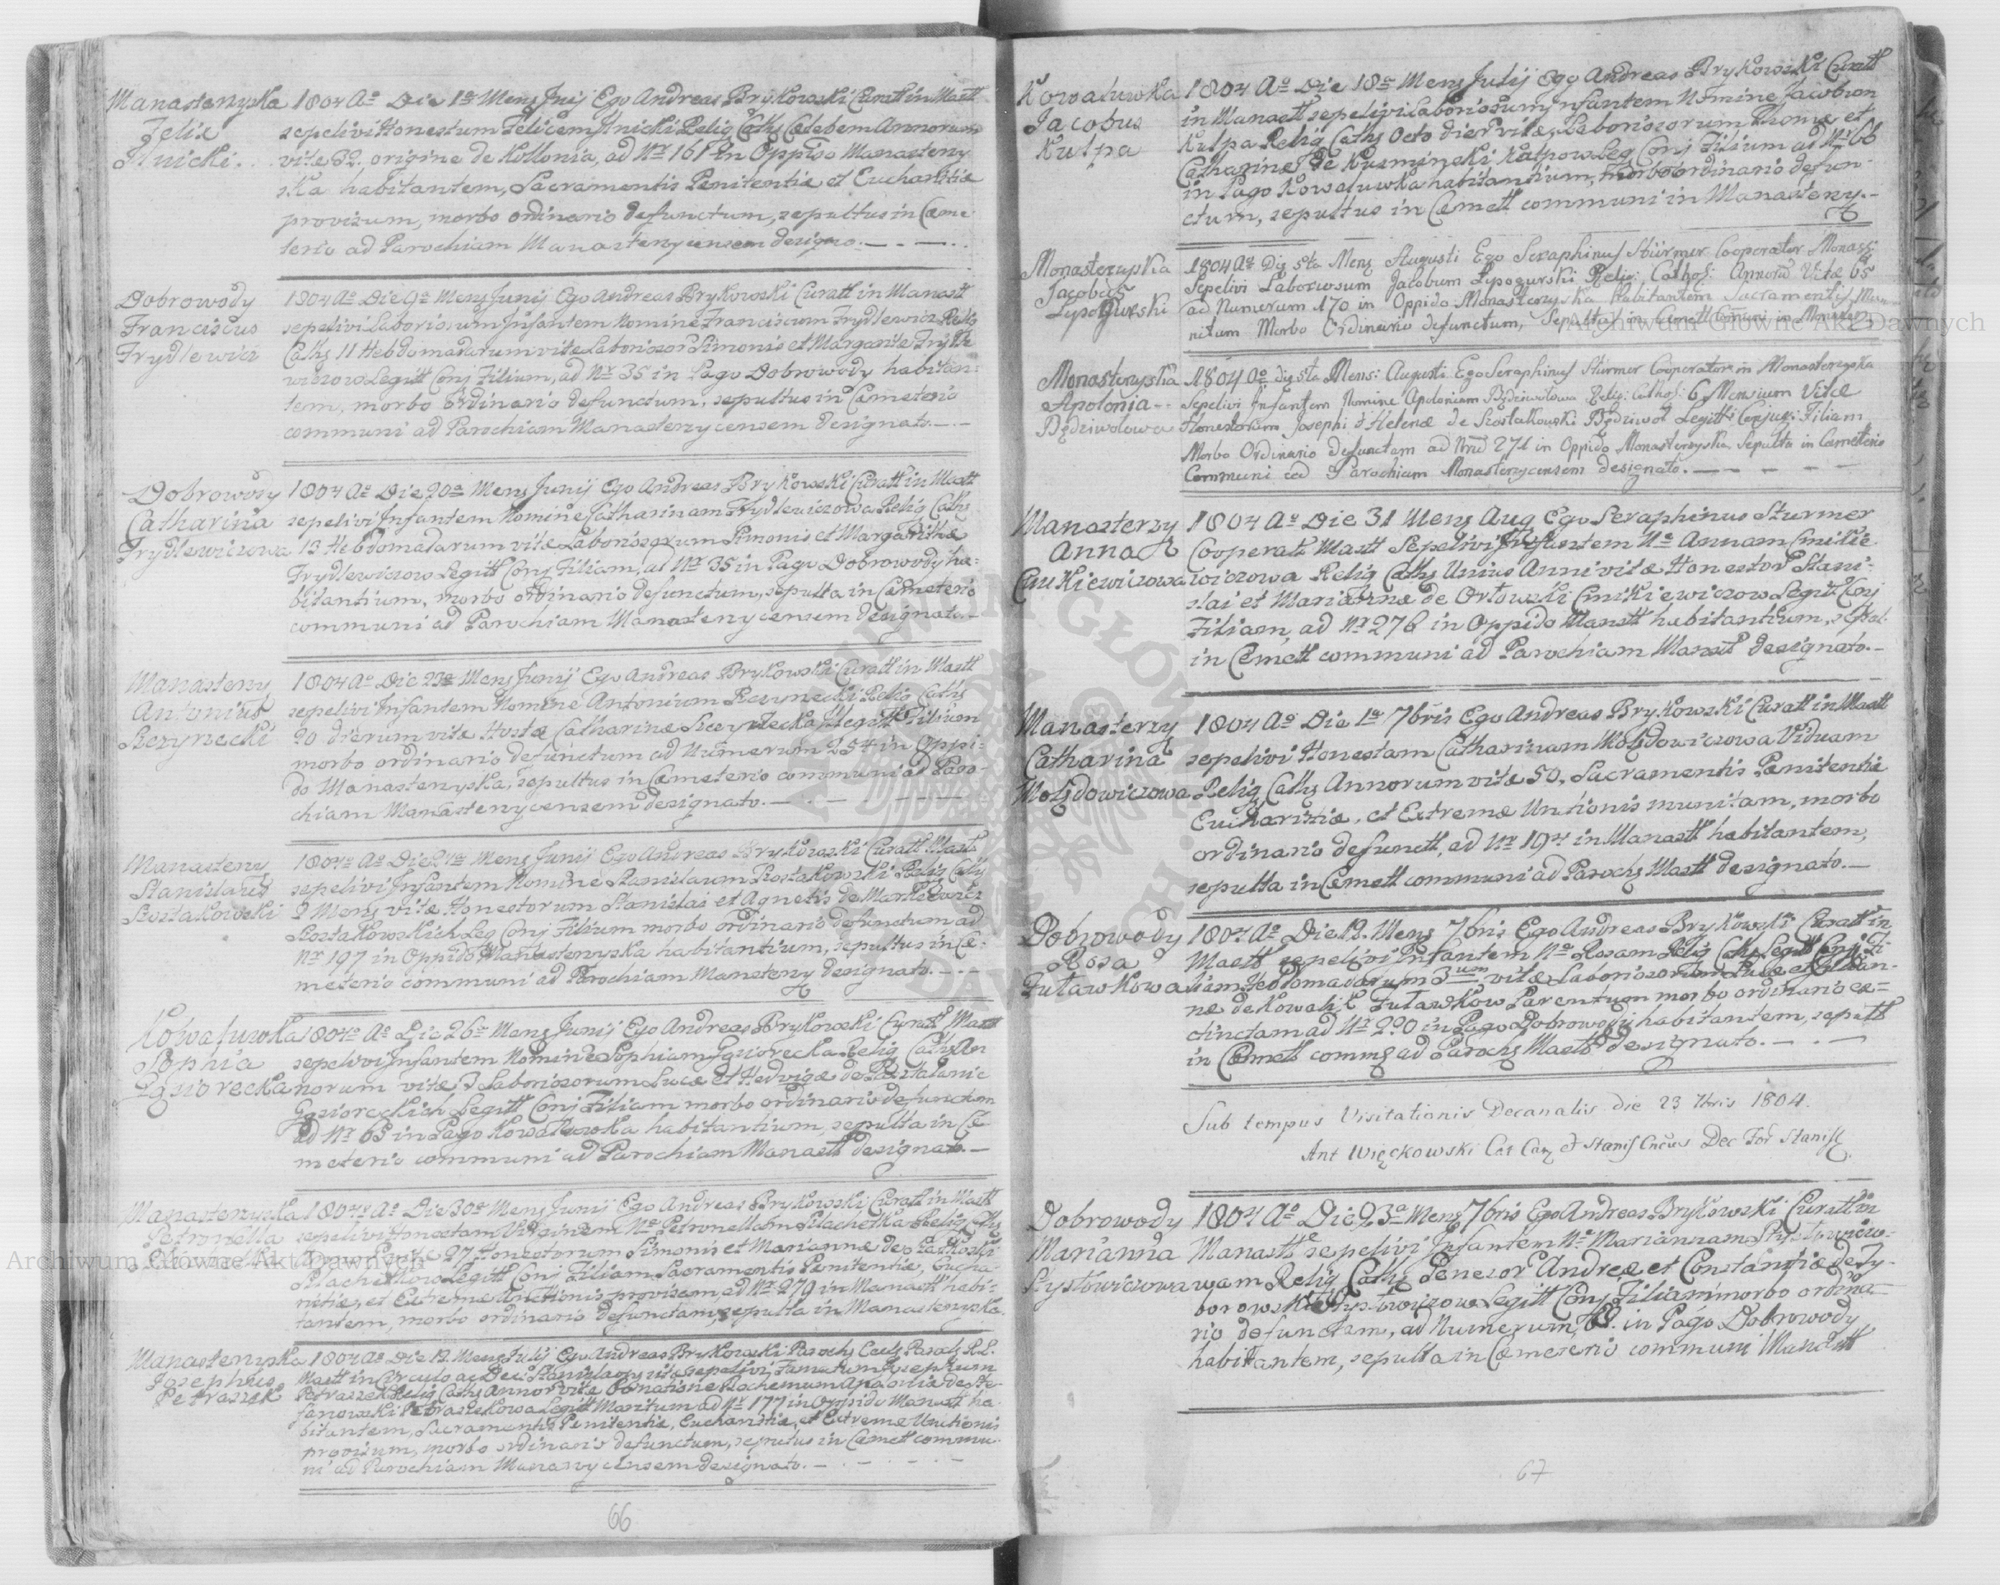 Manasterzyska
Felix
Ilnicki.
1804 Ao Die 1a Mens Junij Ego Andreas Brykowski Curatt in Mastt
sepelivi Honestum Felicem Ilnicki Relig Cath Cælebem Annorum
vitæ 32. origine de Kollonia, ad Nr 161 in Oppido Manasterzy
ska habitantem, Sacramentis Penitentiæ et Eucharistiæ
provisum, morbo ordinario defunctum, sepultus in Cæme
terio ad Parochiam Manasterzycensem designato.
Dobrowody
Franciscus
Frydlewicz
1804 Ao Die 9a Mens Junij Ego Andreas Brykowski Curatt in Manastt
sepelivi Laboriosum Infantem Nomine Franciscum Frydlewicz Relig
Cath 11 Hebdomadarum vitæ Laboriosor Simonis et Margaritæ Frydle
wiczow Legitt Conj Filium, ad Nr 35 in Pago Dobrowody habitan:
tem, morbo ordinario defunctum, sepultus in Cæmeterio
communi ad Parochiam Manasterzycensem designato.
Dobrowody
Catharina
Frydlewiczowa
1804 Ao Die 20a Mens Junij Ego Andreas Brykowski Curatt in Mastt
sepelivi Infantem Nomine Catharinam Frydlewiczowa Relig Cath
13 Hebdomadarum vitæ Laboriosorum Simonis et Margarithæ
Frydlewiczow Legitt Conj Filiam, ad Nr 35 in Pago Dobrowody ha:
bitantium, morbo ordinario defunctum, sepulta in Cæmeterio
communi ad Parochiam Manasterzycensem designato.
Manasterzy
Antonius
Sszezynecki
1804 Ao Die 22a Mens Junij Ego Andreas Brykowski Curatt in Mastt
sepelivi Infantem Nomine Antonium Relig Cath
20 dierum vitæ Catharinæ Illegitt Filium
morbo ordinario defunctum ad Numerum 254 in Oppi:
do Manasterzyska, sepultus in Cæmeterio communi ad Paro-
chiam Manasterzycensem designato.
Manasterzy
Stanislaus
Szostakowski
1804 Ao Die 24a Mens Junij Ego Andreas Brykowski Curatt Mastt
sepelivi Infantem Nomine Stanislaum Szostakowski Relig Cath
2 Mens vitæ Honestorum Stanislai et Agnetis de Markiewicz
Szostakowskich Leg Conj Filium morbo ordinario defunctum ad
Nr 197 in Oppido Manasterzyska habitantium, sepultus in Cæ:
meterio communi ad Parochiam Manasterzy designato.
Kowaluwka
Sophia
Ggiorecka
1804 Ao Die 26a Mens Junij Ego Andreas Brykowski Curatt Mastt
sepelivi Infantem Nomine Sophiam Relig Cath An
norum vitæ 3 Laboriosorum Lucæ et Hedvigæ de
Legitt Conj Filiam morbo ordinario defunctam
ad Nr 65 in Pago Kowaluwka habitantium, sepulta in Cæ
meterio communi ad Parochiam Manastt designato.
Manasterzyska
Petronella
1804 Ao Die 30a Mens Junij Ego Andreas Brykowski Curatt in Mastt
sepelivi Honestam Virginem Ne Petronellam Relig Cath
27 Honestorum Simonis et Mariannæ de
Legitt Conj Filiam Sacramentis Penitentiæ, Eucha:
ristiæ, et Extremæ Unctionis provisam, ad Nr 279 in Manastt habi:
tantem, morbo ordinario defunctam, sepulta in Manasterzyska.
Manasterzyska
Josephus
Petraszek
1804 Ao Die 12 Mens Julij Ego Andreas Brykowski Paroch
Mastt in Circulo ac Dec: Stanislaov sepelivi Famatum Josephum
Petraszek Relig Cath Annor vitæ Apaloniæ de Ste:
fanowski Petraszekowa Legitt Maritum ad Nr 177 in Oppido Manastt ha
bitantem, Sacramentis Penitentiæ, Eucharistiæ, et Extremæ Unctionis
provisum, morbo ordinario defunctum, sepultus in Cæmett commu:
ni ad Parochiam designato.
66
Kowaluwka
Jacobus
Kulpa
1804 Ao Die 18a Mens Julij Ego Andreas Brykowski Curatt
in Manastt sepelivi Laboriosum Infantem Nomine Jacobum
Kulpa Relig Cath Octo dier vitæ, Laboriosorum Thomæ et
Catharinæ de Kuzminski Kulpow Leg Conj Filium ad Nr 66
in Pago Kowaluwka habitantium, morbo ordinario defun-
ctum, sepultus in Cæmett communi in Manasterzy.
Monasterzyska
Jacobus
Lypogurski
1804 Ao Die 5ta Mens Augusti Ego Seraphinus Stürmer Cooperator Monast:
Sepelivi Laboriosum Jacobum Lypogurski Relig: Cathol: Annorum Vitæ 65
ad Numerum 170 in Oppido Monasterzyska Habitantem Sacramentis Mu
nitum Morbo Ordinario defunctum, Sepultus in Cæmett communi in Monaster
Monasterzyska
Apolonja
Będziwołowa
1804 Ao die 5ta Mens: Augusti Ego Seraphinus Stürmer Cooperator in Monasterzyska
Sepelivi Infantem Nomine Apoloniam Będziwołowa Relig: Cathol: 6 Mensium Vitæ
Honestorum Josephi & Helenæ de Szostakowski Będziwoł Legitti Conjug: Filiam
Morbo Ordinario defunctam ad Nrum 271 in Oppido Monasterzyska Sepulta in Cæmeterio
Communi ad Parochiam Monasterzycensem designato.
Manasterzy
Anna
Cmikiewiczowa
1804 Ao Die 31 Mens Aug Ego Seraphinus Sturmer
Cooperatt Mastt Sepelivi Infantem Ne Annam Cmikie
wiczowa Relig Cath Unius Anni vitæ Honestor Stani-
slai et Mariannæ de Orłowski Cmikiewiczow Legitt Conj
Filiam, ad Nr 276 in Oppido Manastt habitantium, sepul.
in Cæmett communi ad Parochiam Manast designato.
Manasterzy
Catharina
Mołsdowiczowa
1804 Ao Die 1a 7bris Ego Andreas Brykowski Curatt in Mastt
sepelivi Honestam Catharinam Mołsdowiczowa Viduam
Relig Cath Annorum vitæ 50. Sacramentis Pænitentiæ
Eucharistiæ, et Extremæ Unctionis munitam, morbo
ordinario defunctt, ad Nr 194 in Manastt habitantem,
sepulta in Cæmett communi ad Paroch Mastt designato.
Dobrowody
Rosa
Puławkowa
1804 Ao Die 12. Mens 7bris Ego Andreas Brykowski Curatt in
Mastt sepelivi Infantem Ne Rosam Relig Cath Legitt Conj Fi
liam Hebdomadarum 3um vitæ Laboriosorum Lucæ et
ne de Kowalik Puławkow Parentum morbo ordinario ex=
tinctam ad Nr 220 in Pago Dobrowody habitantem, sepultt
in Cæmett comm ad Paroch Mastt designato.
Sub tempus Visitationis Decanalis die 23 7bris 1804.
Ant Więckowski Cat Can & Stanisl Dec For Stanisl
Dobrowody
Marianna
Systowiczowa
1804 Ao Die 23a Mens 7bris Ego Andreas Brykowski Curatt in
Manastt sepelivi Infantem Ne Mariannam
wam Relig Cath Andreæ et Constantiæ de Ty-
borowski Legitt Conj Filiam morbo ordina-
rio defunctam, ad Numerum in Pago Dobrowody
habitantem, sepulta in Cæmeterio communi Manastt
67
Archiwum Główne Akt Dawnych
Archiwum Główne Akt Dawnych